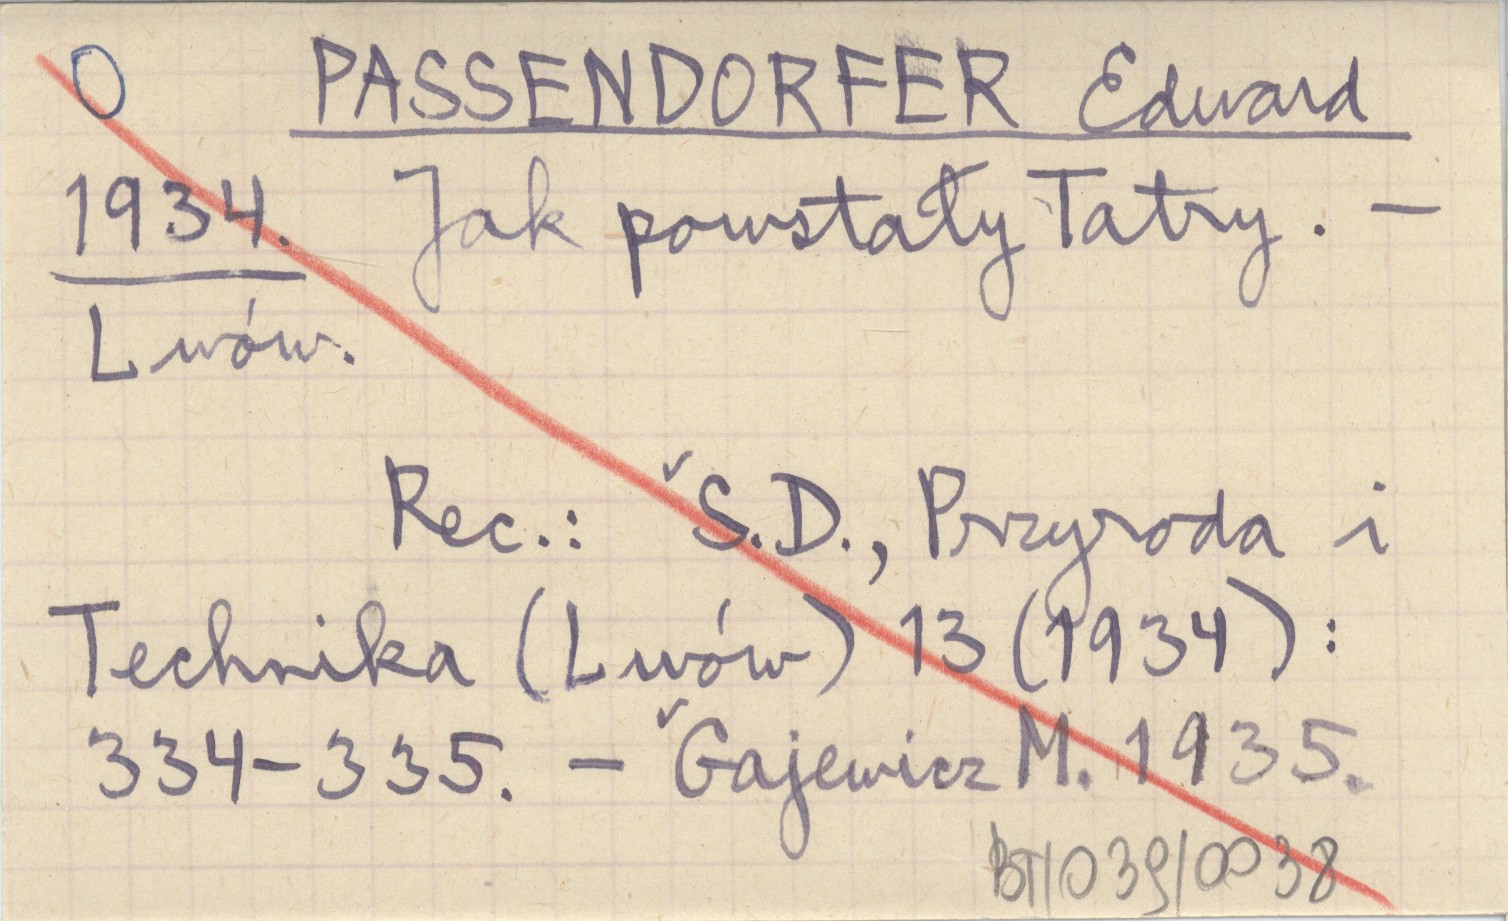 O PASSENDORFER Edward
1934. Jak powstały Tatry. –
Lwów.
Rec.: ˇS.D., Przyroda i
Technika (Lwów) 13 (1934):
334–335. – ˇGajewicz M. 1935.
BT/039/0038